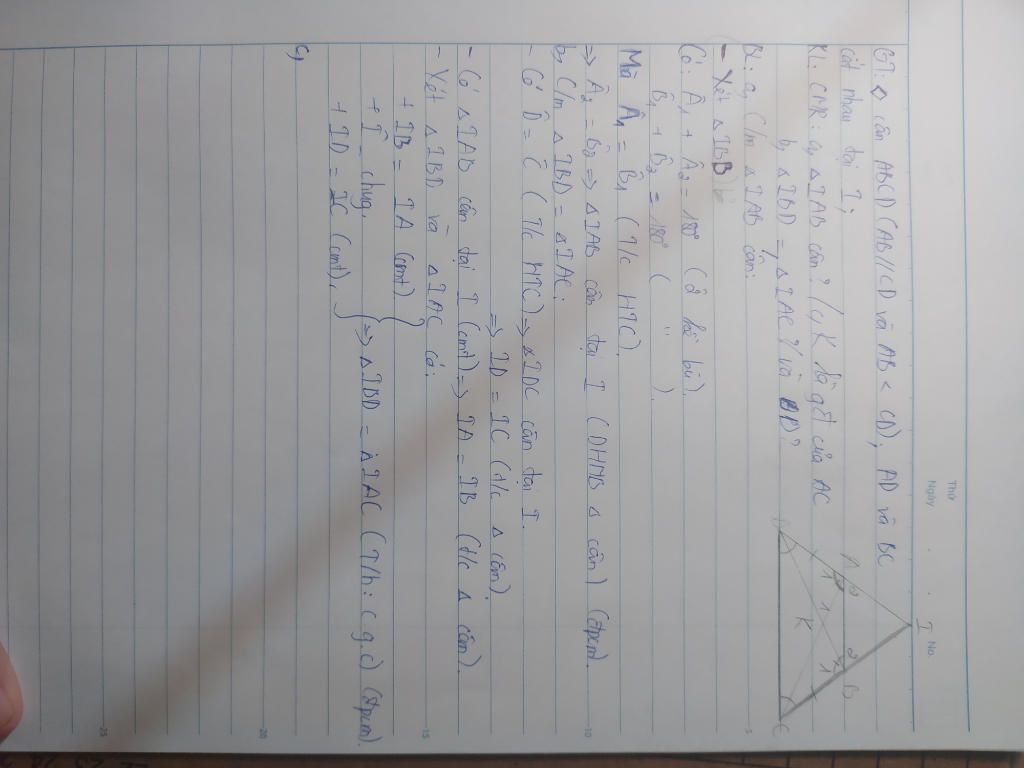 Thứ
Ngày . . No.
GT: ◇ cân ABCD (AB//CD và AB < CD), AD và BC
cắt nhau tại I;
KL: CMR: a, △IAB cân? / c, K là gđ của AC
b, △IBD = △IAC? và BD?
BL: a, C/m △IAB cân:
- Xét △IBB
Có: Â₁ + Â₂ = 180° (2 kề bù).
B̂₁ + B̂₂ = 180° ( " ).
Mà Â₁ = B̂₁ (T/c HTC)
=> Â₂ = B̂₂ => △IAB cân tại I (DHNB △ cân) (đpcm).
b, C/m △IBD = △IAC:
- Có D̂ = Ĉ (T/c HTC) => △IDC cân tại I.
=> ID = IC (t/c △ cân)
- Có △IAB cân tại I (cmt) => IA = IB (t/c △ cân).
- Xét △IBD và △IAC có:
+ IB = IA (cmt)
+ Î chung.
+ ID = IC (cmt).
} => △IBD = △IAC (T/h: c.g.c) (đpcm).
c,
I
A 2 2 B
1 1 1 1
K
D C
5
10
15
20
25